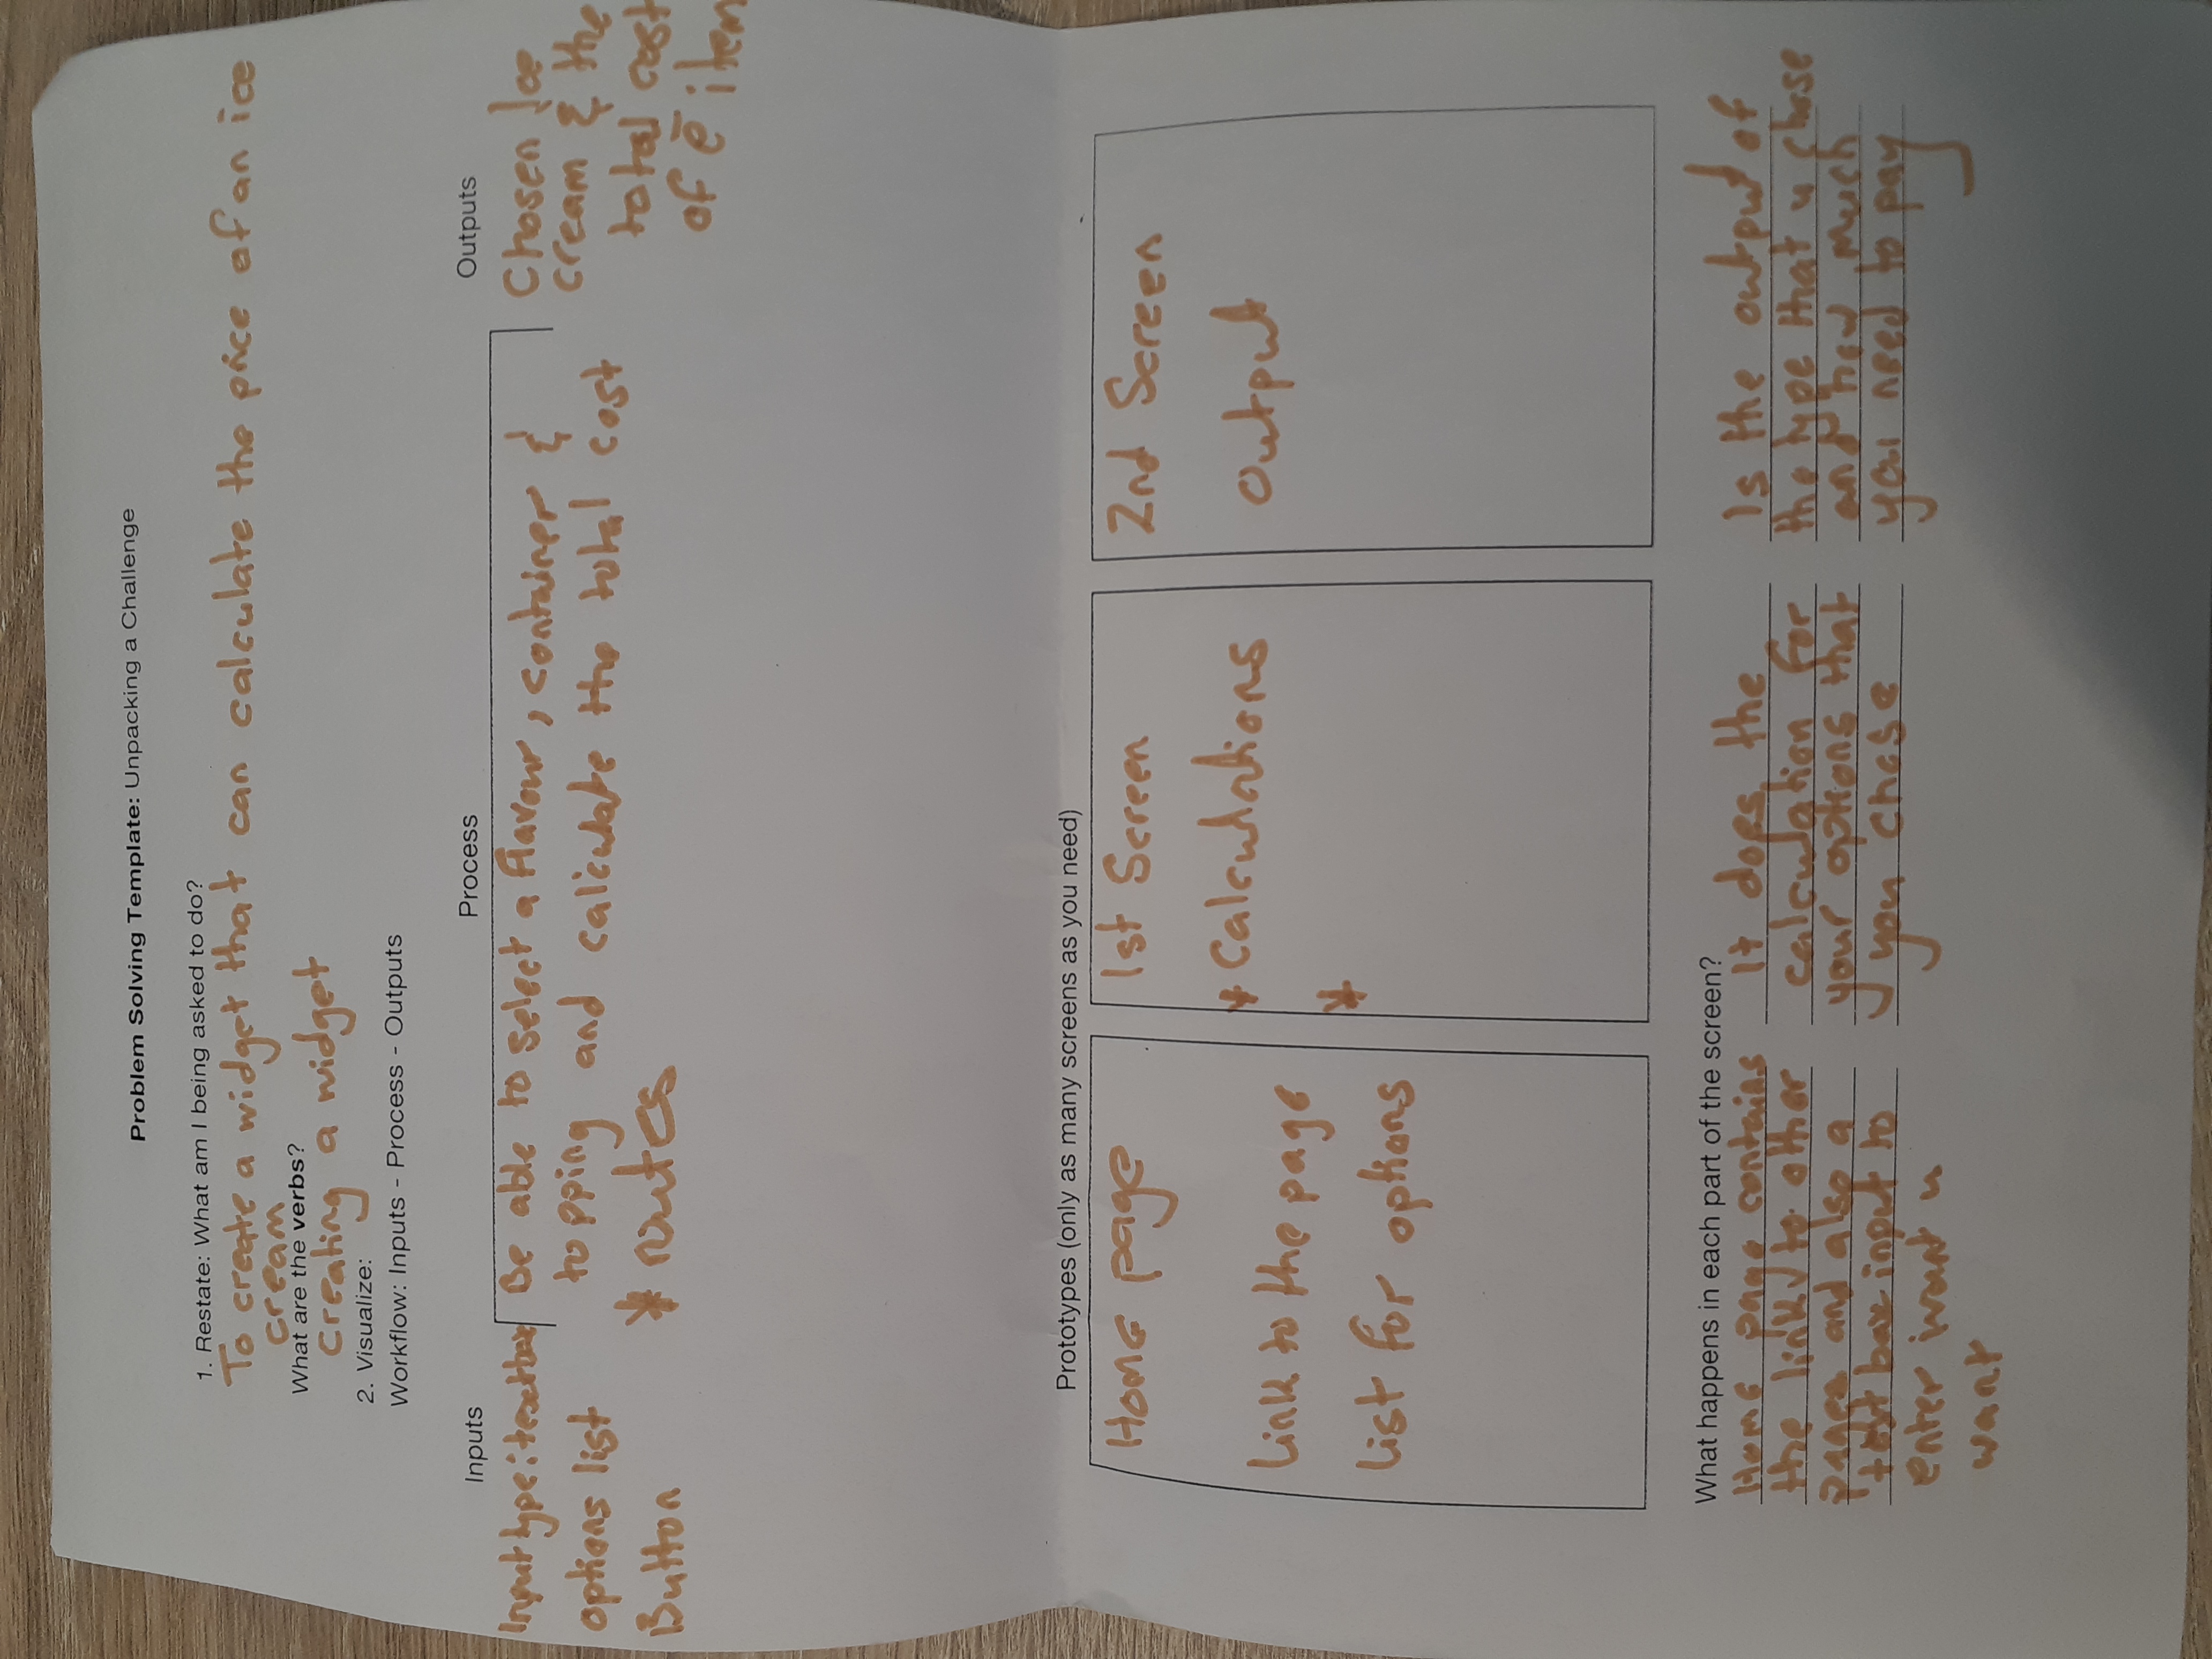 Problem Solving Template: Unpacking a Challenge
1. Restate: What am I being asked to do?
To create a widget that can calculate the price of an ice
cream
What are the verbs?
creating a widget
2. Visualize:
Workflow: Inputs - Process - Outputs
Inputs
Process
Outputs
Input type: textbox
options list
Button
Be able to select a flavour, container &
topping and calculate the total cost
* routes
Chosen Ice
cream & the
total cost
of ē item
Prototypes (only as many screens as you need)
Home page
Link to the page
list for options
1st Screen
* Calculations
*
2nd Screen
output
What happens in each part of the screen?
Home page contains
the link to other
pages and also a
text box input to
enter want u
want
It does the
calculation for
your options that
you chose
Is the output of
the type that u chose
and how much
you need to pay